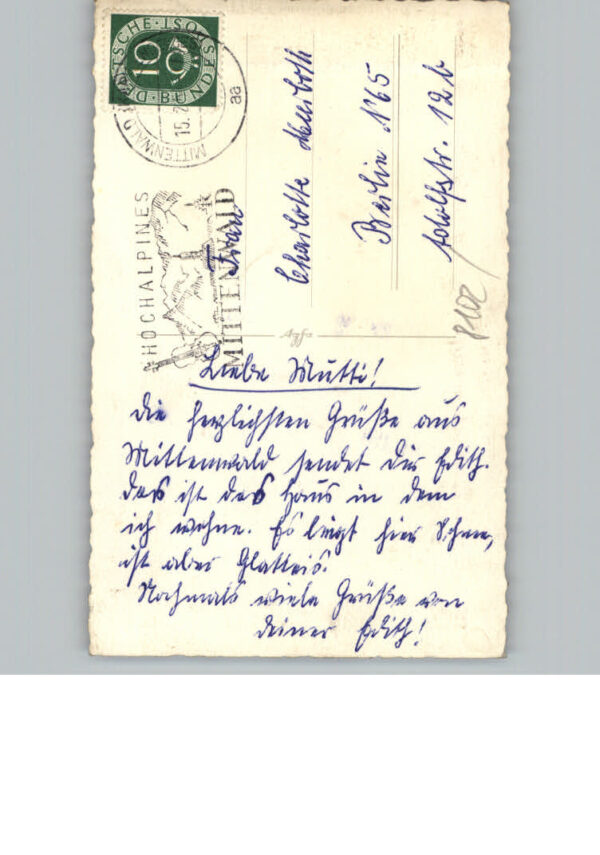 DEUTSCHE BUNDESPOST
10
MITTENWALD
15.2
aa
HOCHALPINES
MITTENWALD
Frau
Charlotte
Berlin N 65
Adolfstr. 12 b
Agfa
Liebe Mutti!
die herzlichsten Grüße aus
Mittenwald sendet dir Edith.
das ist das Haus in dem
ich wohne. Es liegt hier Schnee,
ist aber Glatteis.
Nochmals viele Grüße von
deiner Edith!